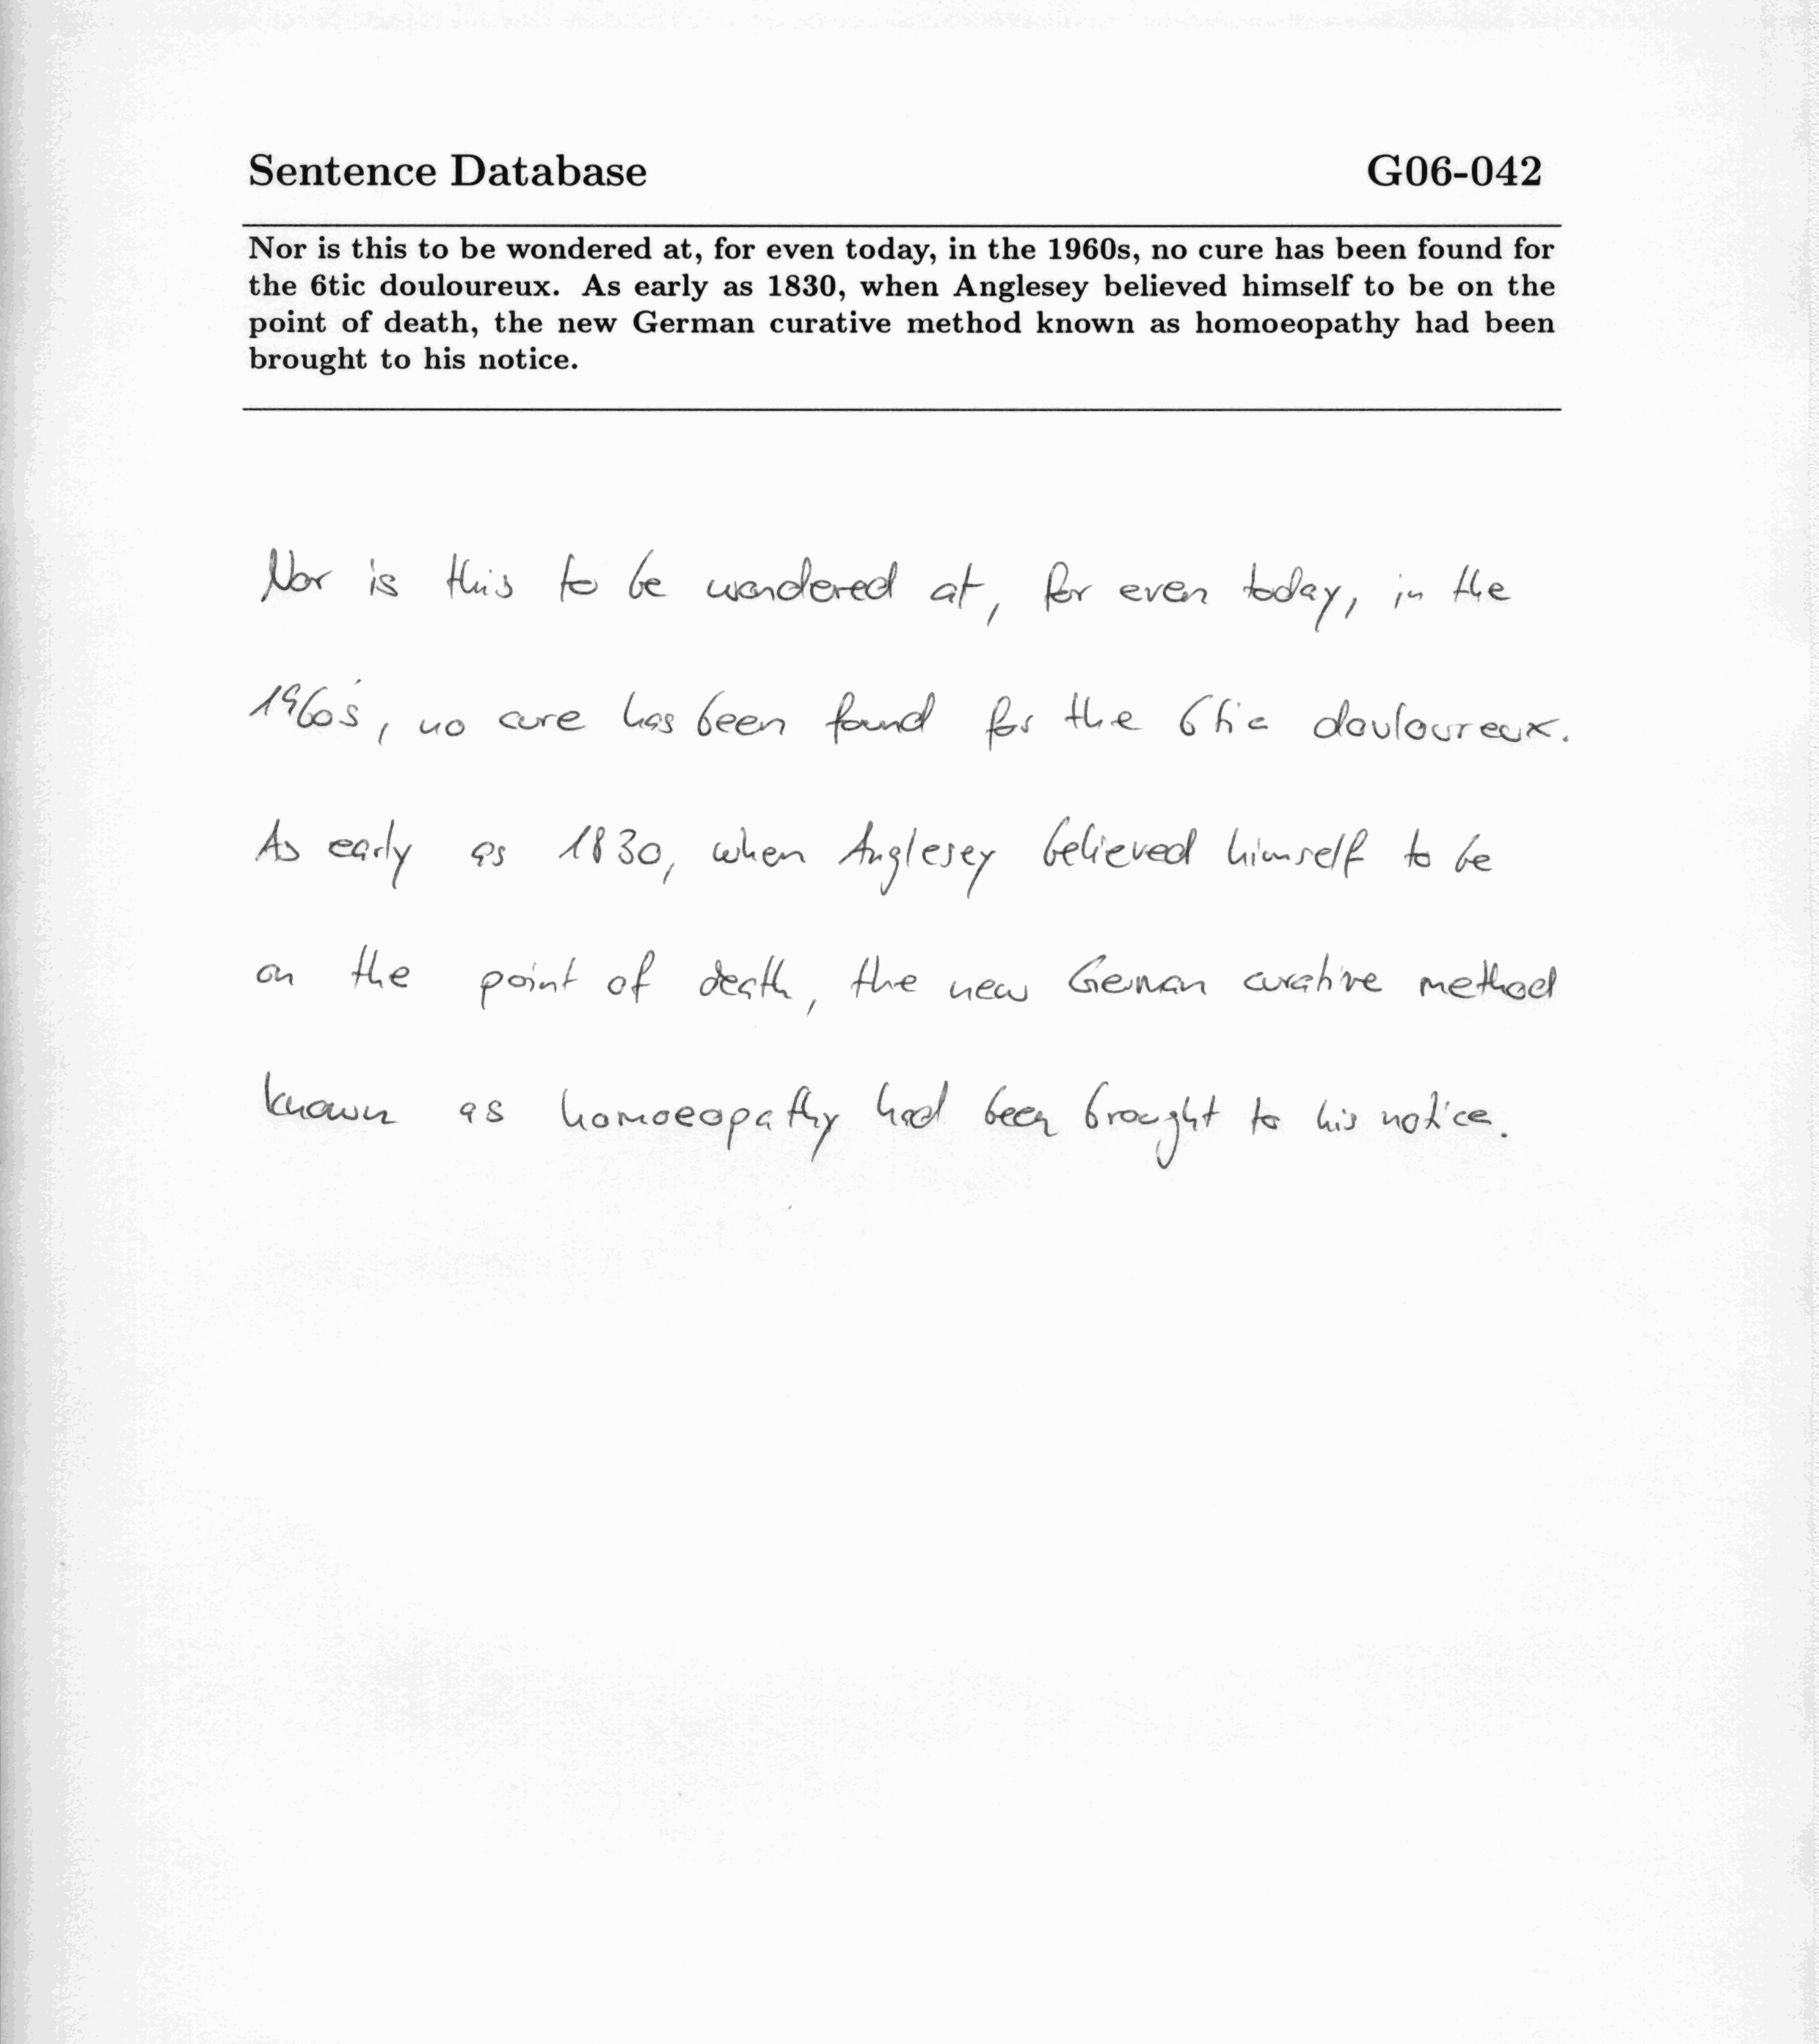 Sentence Database G06-042
Nor is this to be wondered at, for even today, in the 1960s, no cure has been found for
the 6tic douloureux. As early as 1830, when Anglesey believed himself to be on the
point of death, the new German curative method known as homoeopathy had been
brought to his notice.
Nor is this to be wondered at, for even today, in the
1960's, no cure has been found for the 6tic douloureux.
As early as 1830, when Anglesey believed himself to be
on the point of death, the new German curative method
known as homoeopathy had been brought to his notice.